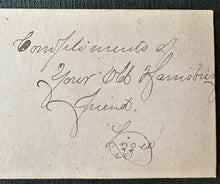 Compliments of
Your Old Harrisburg
friend.
Lizzie